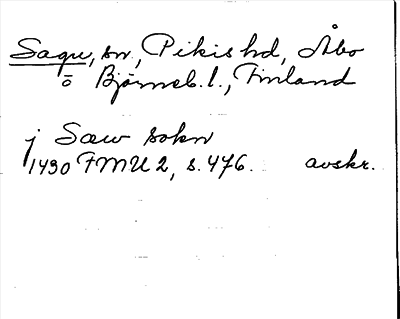 Sagu, sn, Pikis hd, Åbo
o Björneb. l., Finland
j Saw sokn
1430 FMU 2, s. 476. avskr.